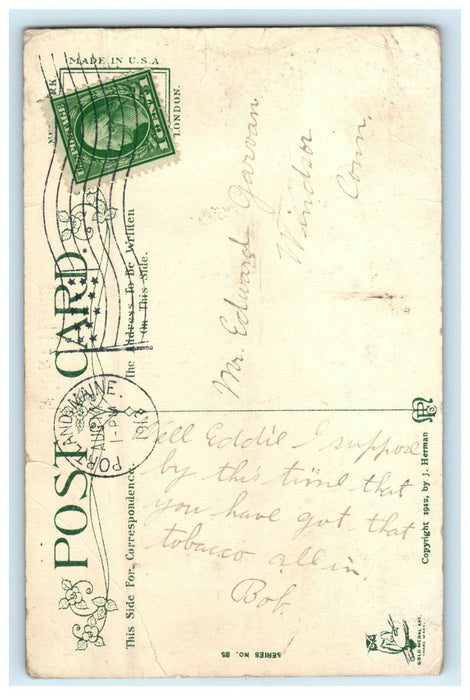 MADE IN U.S.A
LONDON.
U.S. POSTAGE
POST CARD.
The Address To Be Written
On This Side.
This Side For Correspondence.
PORTLAND, MAINE.
AUG
1-PM
Mr. Edward Garvan
Windsor
Conn.
Well Eddie I suppose
by this time that
you have got that
tobacco all in
Bob.
Copyright 1912, by J. Herman
SERIES No. 85
GOLD MEDAL ART